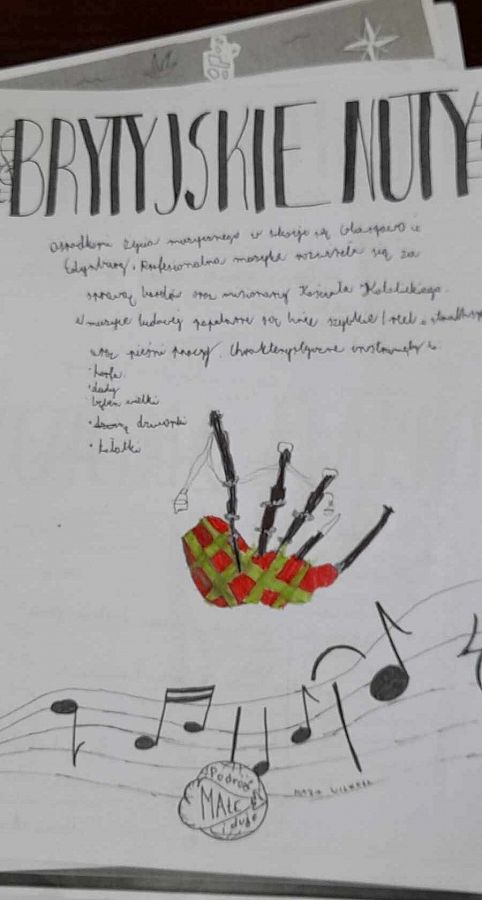 BRYTYJSKIE NUTY
Ośrodkami życia muzycznego w Szkocji są Glasgow i
Edynburg. Profesjonalna muzyka rozwinęła się za
sprawą bardów oraz muzyki Kościoła Katolickiego.
W muzyce ludowej popularne są tańce szybkie/reel,
oraz pieśni pracy. Charakterystyczne instrumenty to
• harfa
• dudy
• bęben wielki
• dzwony
• kołatki
Podróże
MAŁE
i duże